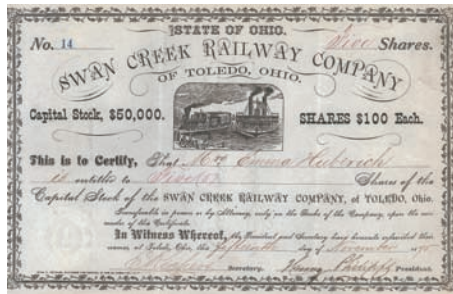 STATE OF OHIO.
No. 14
Five Shares.
SWAN CREEK RAILWAY COMPANY
OF TOLEDO, OHIO.
Capital Stock, $50,000.
SHARES $100 Each.
This is to Certify, That Mrs Emma Huberich
is entitled to Five Shares of the
Capital Stock of the SWAN CREEK RAILWAY COMPANY, of TOLEDO, Ohio.
Transferable in person or by Attorney, only on the Books of the Company, upon the sur-
render of this Certificate.
In Witness Whereof, the President and Secretary have hereunto subscribed their
names, at Toledo, Ohio, this fifteenth day of November
Secretary.
President.